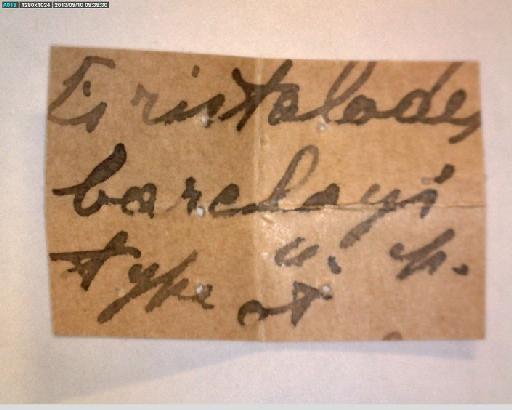 A013 1280x1024 2013/09/10 09:39:30
Eristalodes
barclayi
n. sp.
type ♂